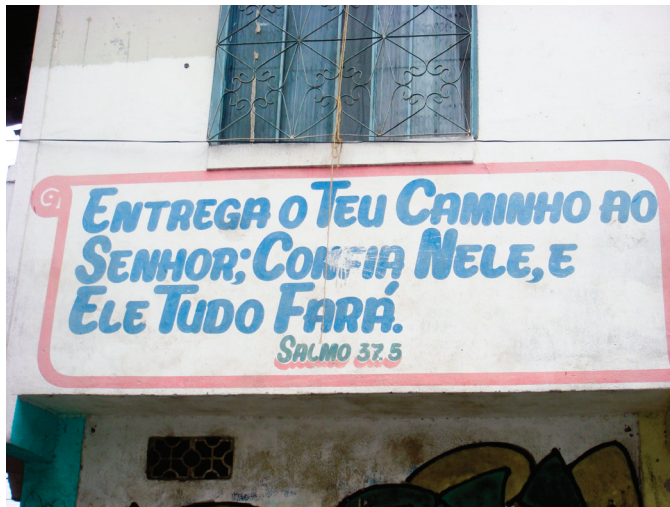 Entrega o Teu Caminho ao
Senhor; Confia Nele, e
Ele Tudo Fará.
Salmo 37.5